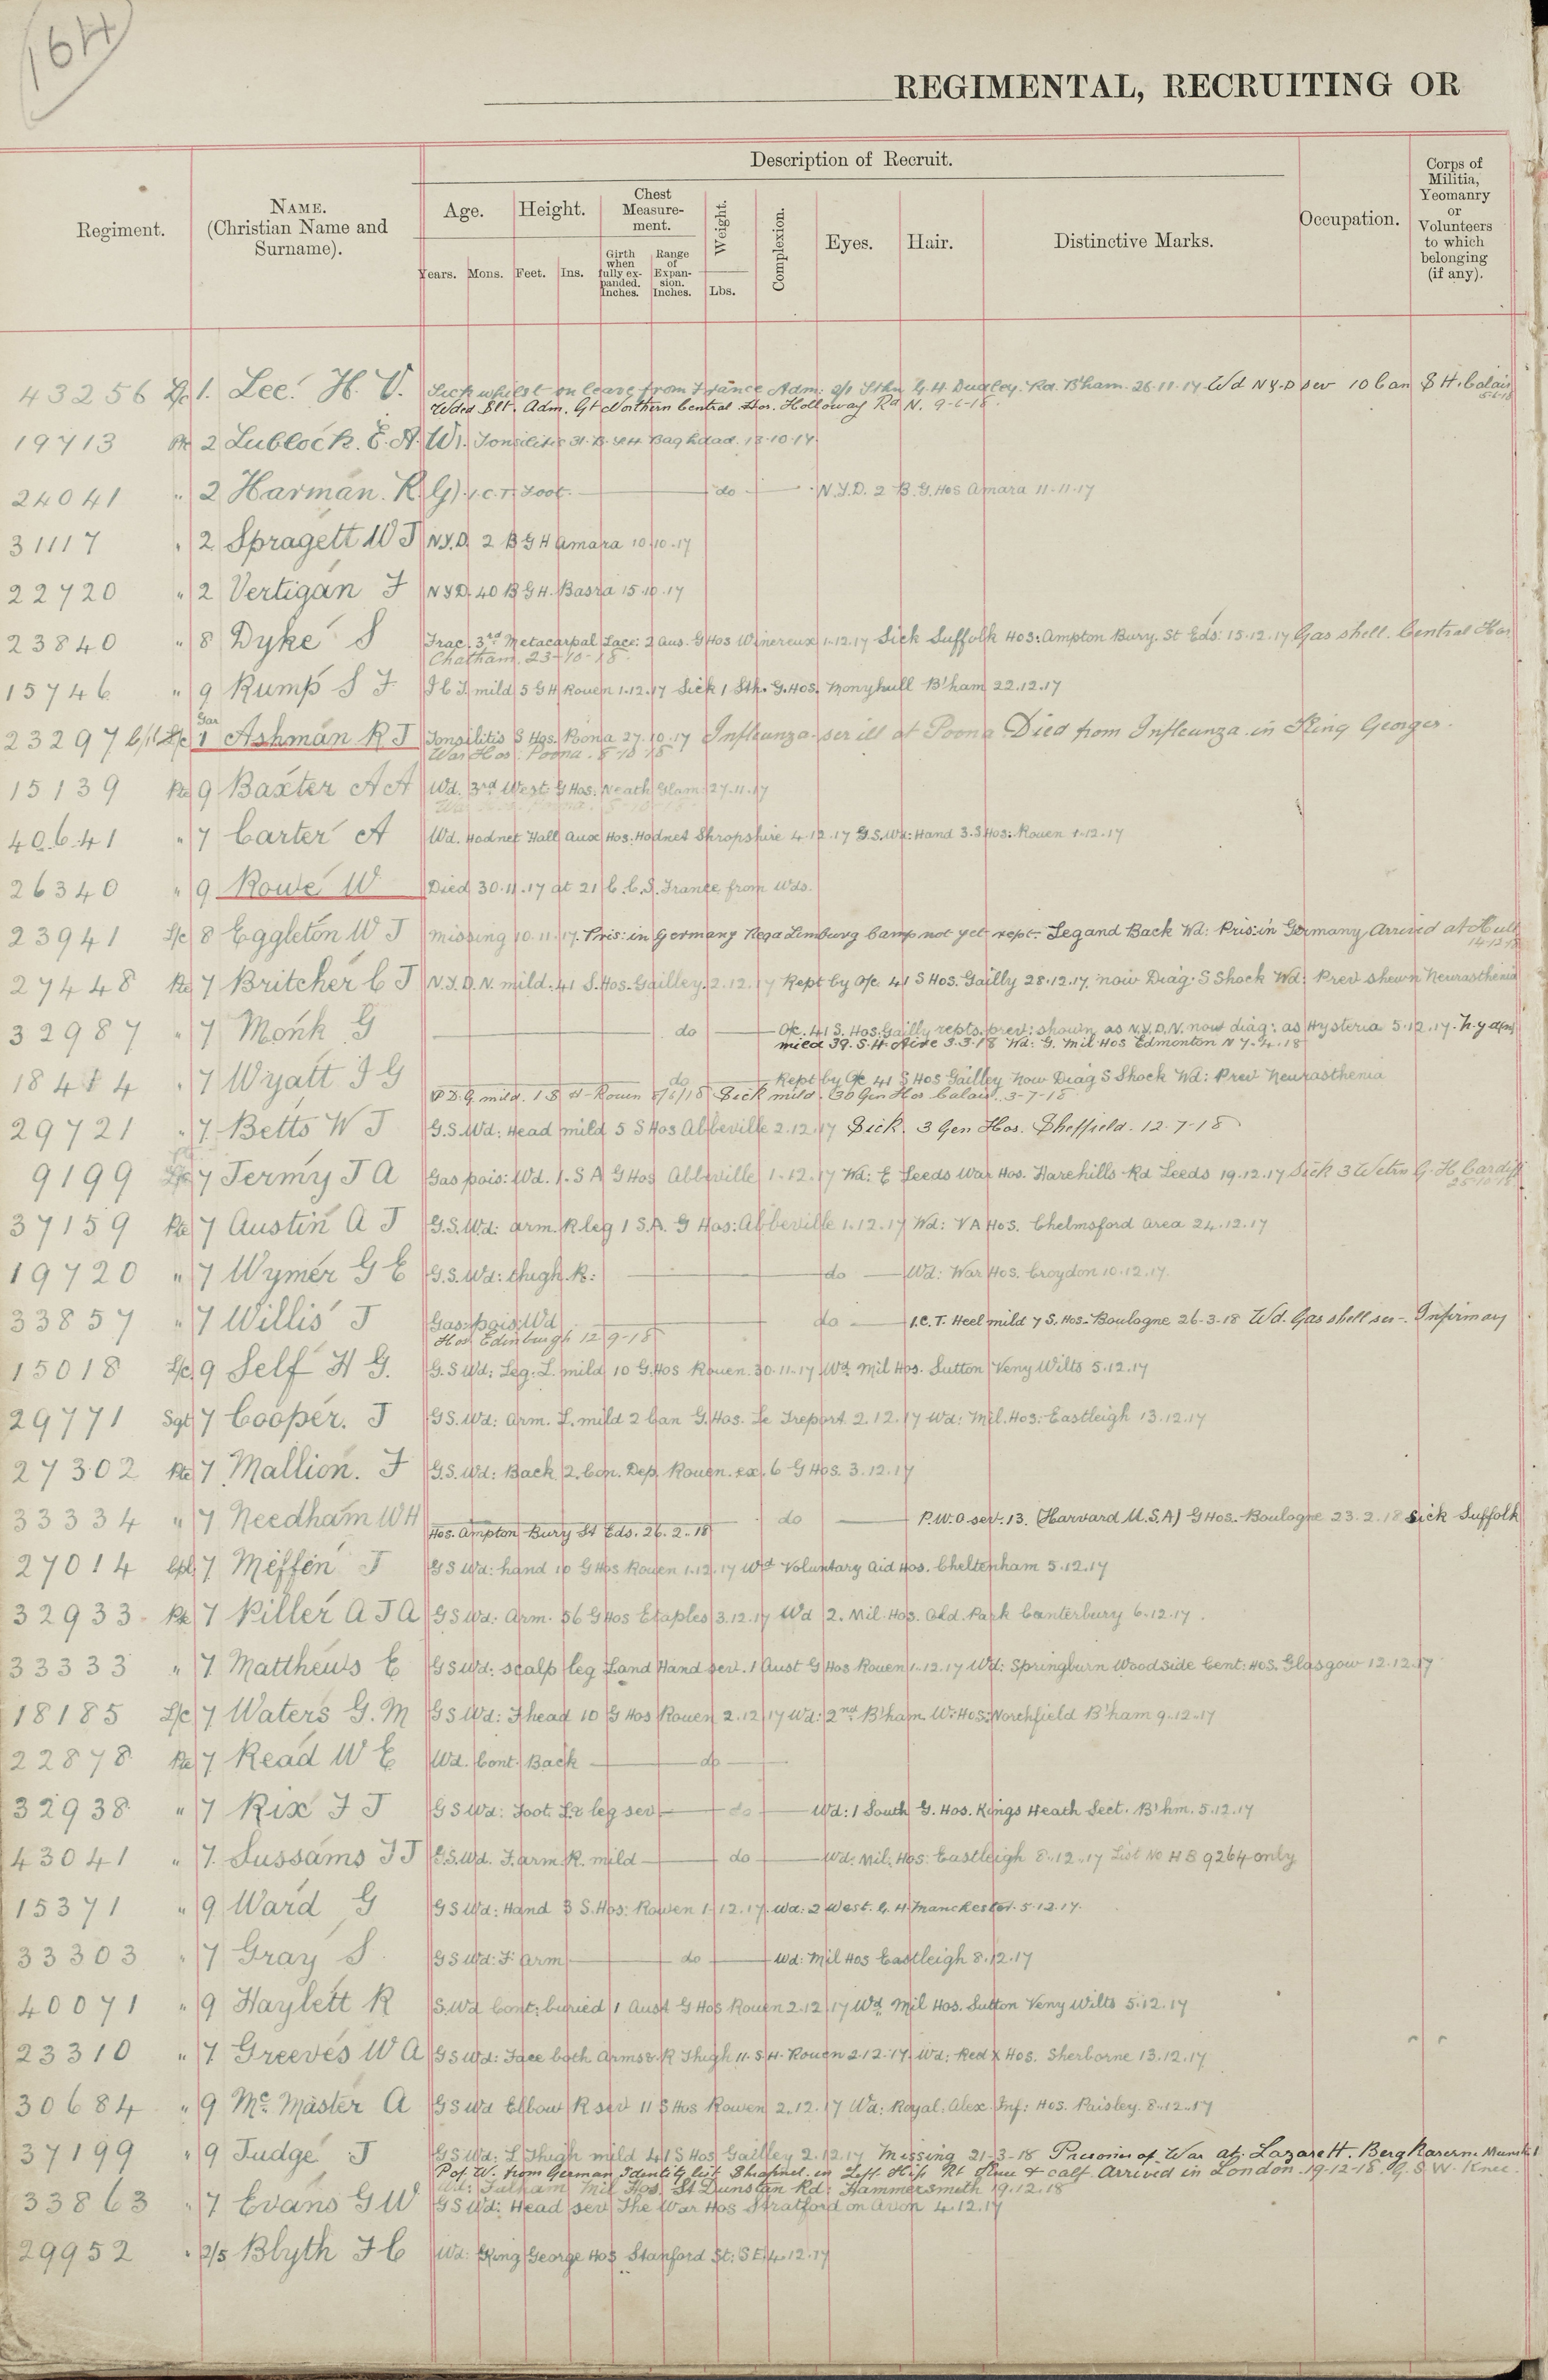 164
REGIMENTAL, RECRUITING OR
Description of Recruit.
Regiment.
NAME.
(Christian Name and
Surname).
Age.
Height.
Chest
Measure-
ment.
Weight.
Complexion.
Eyes.
Hair.
Distinctive Marks.
Occupation.
Corps of
Militia,
Yeomanry
or
Volunteers
to which
belonging
(if any).
Years.
Mons.
Feet.
Ins.
Girth
when
fully ex-
panded.
Inches.
Range
of
Expan-
sion.
Inches.
Lbs.
43256 L/c 1. Lee. H. V. Sick whilst on leave from France Adm: 2/1 Sthn G. H. Dudley Rd. B'ham. 26.11.17 Wd N.Y.D sev 10 Can S H. Calais
5-6-18
Wded Slt. Adm. Gt Northern Central Hos. Holloway Rd N. 9-6-18.
19713 Pte 2 Lublock. E. A. W. Tonsilitis 31. B. S H Baghdad. 13.10.17.
24041 " 2 Harman. R. G). I.C.T. Foot. do N.Y.D. 2 B. G. Hos Amara 11.11.17
31117 " 2 Spragett W J N.Y.D. 2 B G H Amara 10.10.17
22720 " 2 Vertigan F N Y D. 40 B G H. Basra 15.10.17
23840 " 8 Dyke S Frac. 3rd Metacarpal Lace: 2 Aus. G Hos Wimereux 1.12.17 Sick Suffolk Hos: Ampton Bury. St Eds: 15.12.17 Gas shell. Central Hos
Chatham. 23-10-18.
15746 " 9 Rump S F I C T mild 5 G H Rouen 1.12.17 Sick 1 Sth. G. Hos. Monyhull B'ham 22.12.17
Gar
23297 L/c 1 Ashman R J Tonsilitis S Hos. Poona 27.10.17 Influenza. ser ill at Poona Died from Influenza in King Georges.
War Hos. Poona. 8-10-18
15139 Pte 9 Baxter A A Wd. 3rd West G Hos. Neath Glam: 27.11.17
40641 " 7 Carter A Wd. Hodnet Hall Aux Hos: Hodnet Shropshire 4.12.17 G.S. Wd: Hand 3.S Hos: Rouen 1.12.17
26340 " 9 Rowe W Died 30.11.17 at 21 C. C. S. France from Wds.
23941 L/c 8 Eggleton W J Missing 10.11.17. Pris: in Germany Rega Limburg Camp not yet rept. Leg and Back Wd: Pris: in Germany Arrived at Hull
14-12-18
27448 Pte 7 Britcher C J N.Y.D.N. mild. 41 S. Hos. Gailley. 2.12.17 Rept by O/c 41 S Hos. Gailly 28.12.17. now Diag. S Shock Wd: Prev shewn Neurasthenia
32987 " 7 Monk G do O/c. 41 S. Hos. Gailly repts. prev: shown as N.Y.D.N. now diag: as Hysteria 5.12.17. N.y.d(n)
mild 39. S. H. Aire 3.3.18 Wd: G. Mil Hos Edmonton N 7.4.18
18414 " 7 Wyatt J G do Rept by O/c 41 S Hos Gailley now Diag S Shock Wd: Prev Neurasthenia
P.D.G. mild. 1 S H Rouen 8/6/18 Sick mild. 30 Gen Hos Calais. 3-7-18
29721 " 7 Betts W J G.S. Wd: Head mild 5 S Hos Abbeville 2.12.17 Sick. 3 Gen Hos. Sheffield. 12-7-18
9199 7 Jermy J A Gas pois: Wd. 1. S A G Hos Abbeville 1.12.17 Wd: E Leeds War Hos. Harehills Rd Leeds 19.12.17 Sick 3 Wstrn G. H Cardiff
25-10-18
37159 Pte 7 Austin A J G.S. Wd: arm. R leg 1 S.A. G Hos: Abbeville 1.12.17 Wd: V A Hos. Chelmsford area 24.12.17
19720 " 7 Wymer G E G.S. Wd: thigh R: do Wd: War Hos. Croydon 10.12.17.
33857 " 7 Willis J Gas pois: Wd do I.C.T. Heel mild 7 S. Hos. Boulogne 26-3-18 Wd. Gas shell sev. Infirmary
Hos Edinburgh 12-9-18
15018 L/c. 9 Self H G. G.S Wd: Leg. L. mild 10 G. Hos Rouen. 30.11.17 Wd Mil Hos. Sutton Veny Wilts 5.12.17
29771 Sgt 7 Cooper. J G S. Wd: Arm. L. mild 2 Can G. Hos. Le Treport. 2.12.17 Wd: Mil. Hos: Eastleigh 13.12.17
27302 Pte 7. Mallion. F G.S. Wd: Back 2. Con. Dep. Rouen. ex. 6 G Hos. 3.12.17
33334 " 7 Needham W H do P.U.O sev. 13. (Harvard U.S.A) G Hos. Boulogne 23.2.18 Sick Suffolk
Hos. Ampton Bury St Eds. 26.2.18
27014 Cpl 7 Meffen J G S Wd: hand 10 G Hos Rouen 1.12.17 Wd Voluntary Aid Hos. Cheltenham 5.12.17
32933 Pte 7 Piller A J A G S Wd. Arm. 56 G Hos Etaples 3.12.17 Wd 2. Mil. Hos. Old. Park Canterbury 6.12.17.
33333 " 7 Matthews E G S Wd: scalp leg L and Hand sev. 1 Aust G Hos Rouen 1.12.17 Wd: Springburn Woodside Cent: Hos. Glasgow 12.12.17
18185 L/c 7 Waters G. M G S Wd: F head 10 G Hos Rouen 2.12.17 Wd: 2nd B'ham W: Hos: Northfield B'ham 9.12.17
22878 Pte 7 Read W E Wd. Cont: Back do
32938 " 7 Rix F J G S Wd: Foot L & leg sev do Wd: 1 South G. Hos. Kings Heath Sect. B'hm. 5.12.17
43041 " 7. Sussams J J G.S. Wd. F. arm. R. mild do Wd: Mil: Hos: Eastleigh 8.12.17 List No H B 9264 only
15371 " 9 Ward G G S Wd: Hand 3 S. Hos: Rouen 1.12.17. Wd: 2 West. G. H Manchester. 5.12.17.
33303 " 7 Gray S. G S Wd: F. arm do Wd: Mil Hos Eastleigh 8.12.17
40071 " 9 Haylett R S. Wd Cont: buried 1 Aust G Hos Rouen 2.12.17 Wd Mil Hos. Sutton Veny Wilts 5.12.17
23310 " 7 Greeves W A G S Wd: Face both Arms & R Thigh 11. S H. Rouen 2.12.17. Wd: Red X Hos. Sherborne 13.12.17
30684 " 9 Mc Master A G S Wd Elbow R sev 11 S Hos Rouen 2.12.17 Wd: Royal. Alex. Inf: Hos. Paisley. 8.12.17
37199 " 9 Judge J G S Wd: L Thigh mild 41 S Hos Gailley 2.12.17 Missing 21-3-18 Prisoner of War at Lazarett. Berg Kaserne Munster
P of W. from German Identity list Shrapnel in Left Hip Rt Knee & calf. Arrived in London. 19-12-18. G. S W. Knee.
Wd: Fulham Mil Hos. St Dunstan Rd: Hammersmith 19.12.18
33863 " 7 Evans G W G S Wd: Head sev The War Hos Stratford on Avon 4.12.17
29952 " 2/5 Blyth F C Wd: King George Hos Stanford St: S E. 4.12.17